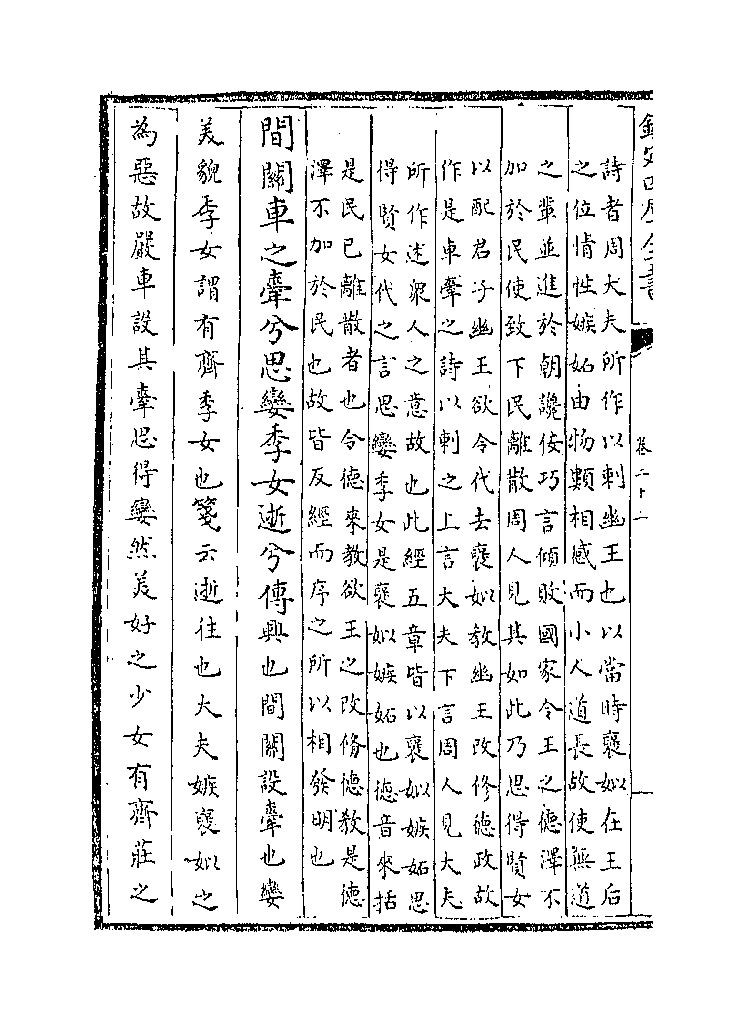 欽定四庫全書
卷二十一
詩者周大夫所作以刺幽王也以當時褒姒在王后
之位情性嫉妬由物類相感而小人道長故使無道
之輩並進於朝讒佞巧言傾敗國家令王之德澤不
加於民使致下民離散周人見其如此乃思得賢女
以配君子幽王欲令代去褒姒教幽王改修德政故
作是車舝之詩以刺之上言大夫下言周人見大夫
所作述衆人之意故也此經五章皆以褒姒嫉妬思
得賢女代之言思孌季女是褒姒嫉妬也德音來括
是民已離散者也令德來教欲王之改脩德教是德
澤不加於民也故皆反經而序之所以相發明也
間關車之舝兮思孌季女逝兮傳興也間關設舝也孌
美貌季女謂有齊季女也箋云逝往也大夫嫉褒姒之
為惡故嚴車設其舝思得孌然美好之少女有齊莊之